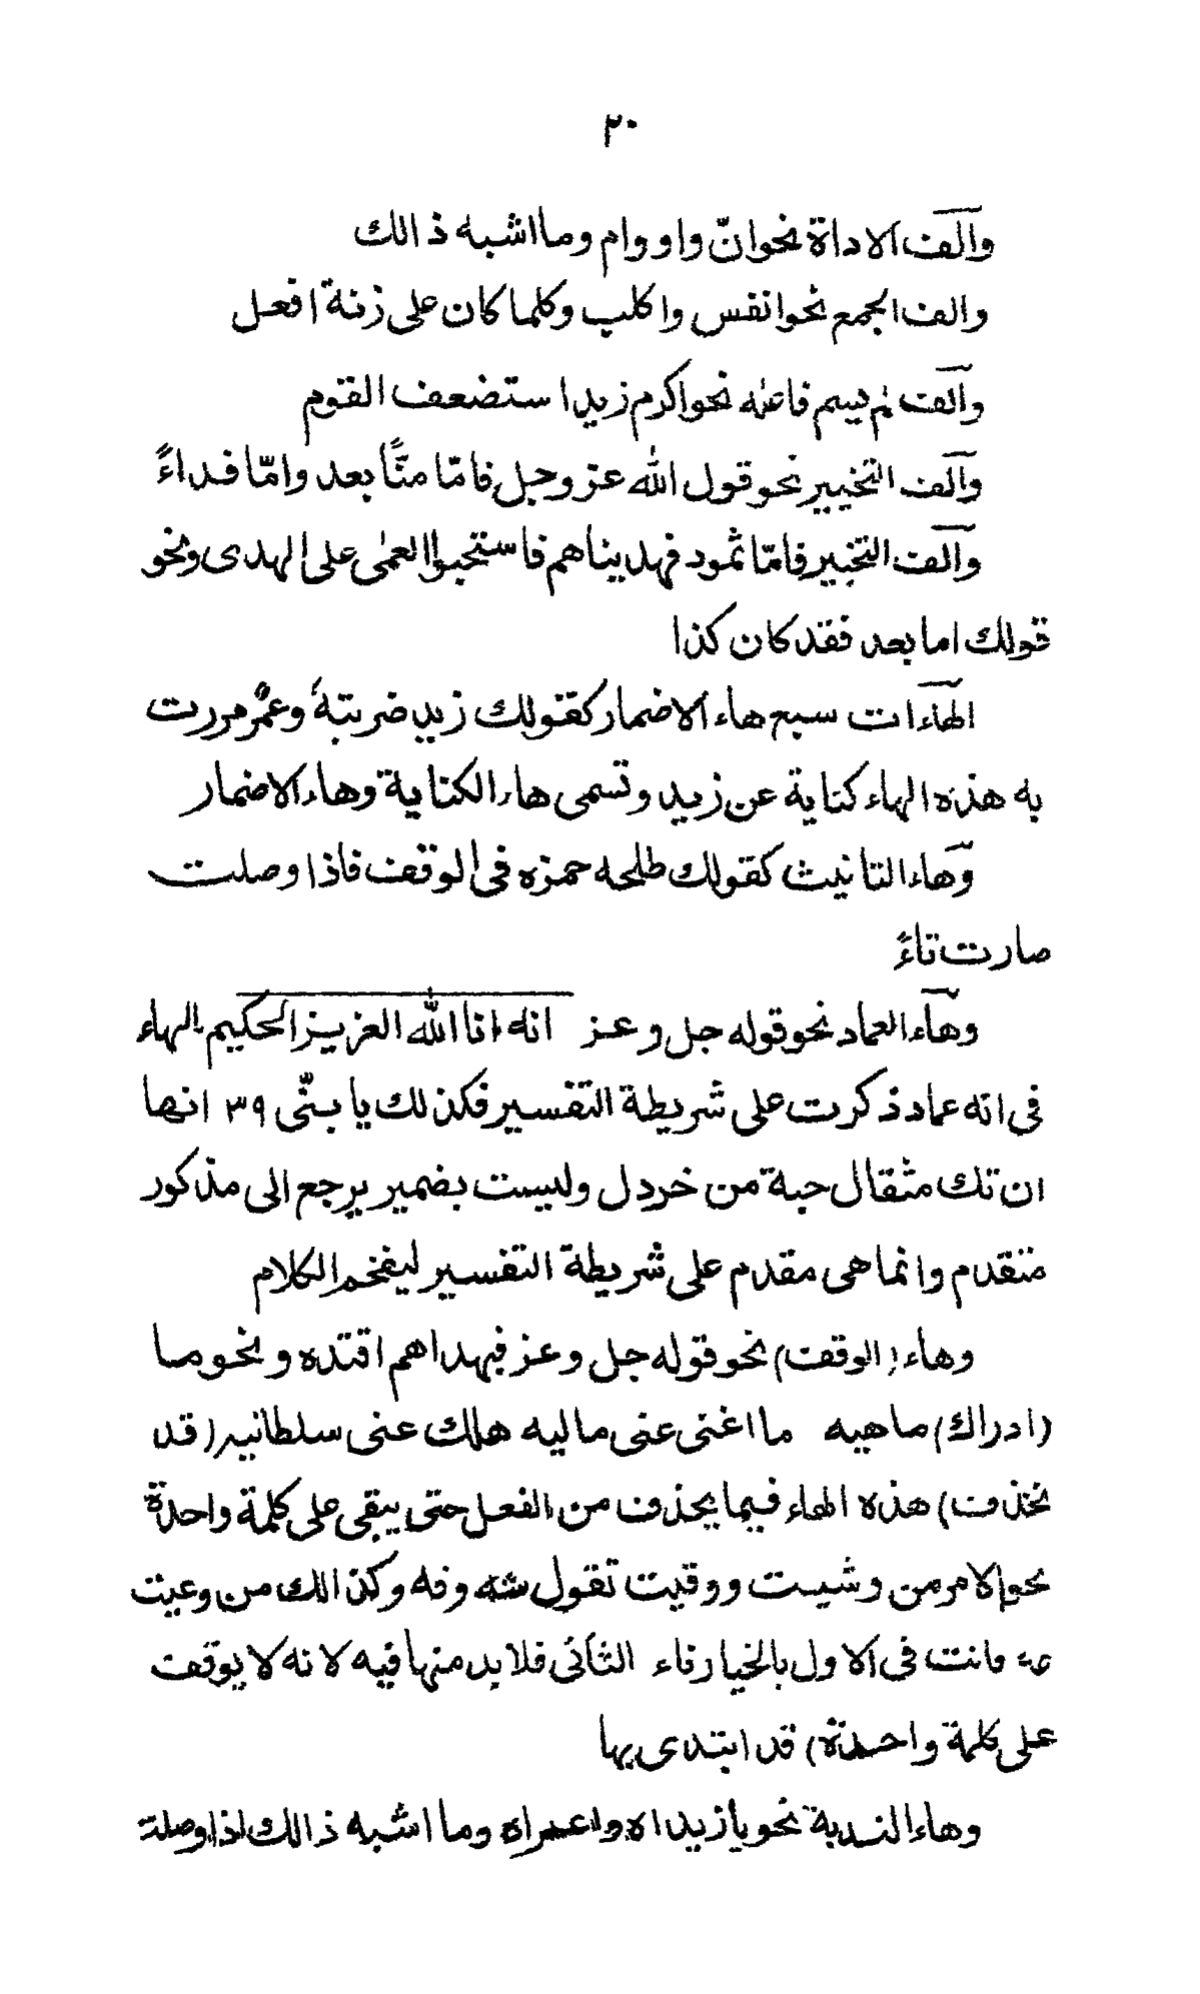 ٢٠
وآلف الاداة نحوانّ واو وام وما اشبه ذ الك
والف الجمع نحوانفس واكلب وكلما كان على زنة افعل
وآلف لم يسم فاعله نحواكرم زيد استضعف القوم
وآلف التخيير نحوقول الله عز وجل فامّا منّاً بعد وامّا فداءً
وآلف التخبير فامّا ثمود فهديناهم فاستحبوا العمٰى على الهدى ونحو
قولك اما بعد فقد كان كذا
الهاءات سبع هاء الاضمار كقولك زيد ضربتهُ وعمرٌ مررت
به هذه الهاء كناية عن زيد وتسمى هاء الكناية وهاء الاضمار
وهاء التانيث كقولك طلحه حمزه فى الوقف فاذا وصلت
صارت تاءً
وهاء العماد نحوقوله جل وعز انه انا الله العزيز الحكيم الهاء
فى انه عماد ذكرت على شريطة التفسير فكذلك يا بنّى ٣٩ انها
ان تك مثقال حبة من خردل وليست بضمير يرجع الى مذكور
متقدم وانما هى مقدم على شريطة التفسير ليفخم الكلام
وهاء (الوقف) نحوقوله جل وعز فبهداهم اقتده ونحوما
(ادراك) ماهيه ما اغنى عنى ماليه هلك عنى سلطانيه (قد
تحذف) هذه الهاء فيما يحذف من الفعل حتى يبقى على كلمة واحدة
نحوالامر من وشيت ووقيت تقول شه وفه وكذالك من وعيت
عه فانت فى الاول بالخيار فاء الثانى فلابد منها فيه لانه لا يوقف
على كلمة واحدة) قد ابتدى بها
وهاء الندبة نحو يازيداه واعمراه وما اشبه ذالك اذا وصلة